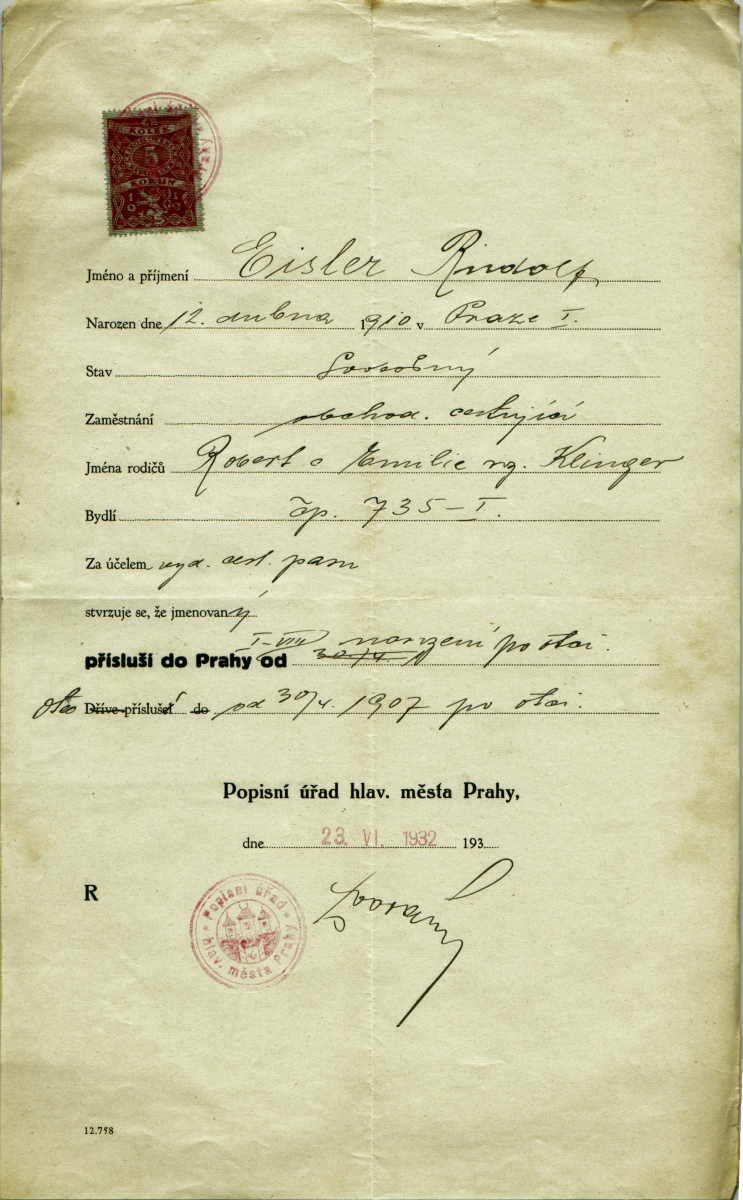 KOLEK
5
KORUN
Jméno a příjmení Eisler Rudolf
Narozen dne 12. dubna 1910 v Praze I.
Stav svobodný
Zaměstnání obchod. cestující
Jména rodičů Robert a Emilie roz. Klinger
Bydlí čp. 735-I.
Za účelem vyd. cest. pasu
stvrzuje se, že jmenovaný
I-VIII narození po otci.
přísluší do Prahy od 30/4.
otec Dříve příslušel do od 30/4. 1907 po otci.
Popisní úřad hlav. města Prahy,
dne 23. VI. 1932 193
R
Popisní úřad hlav. města Prahy
12.758